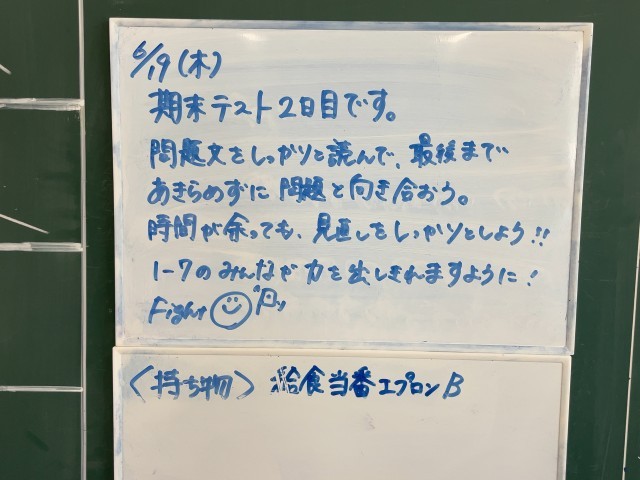 6/19(木)
期末テスト2日目です。
問題文をしっかりと読んで、最後まで
あきらめずに問題と向き合おう。
時間が余っても、見直しをしっかりとしよう!!
1-7のみんなが力を出しきれますように!
Fight
〈持ち物〉 給食当番エプロンB